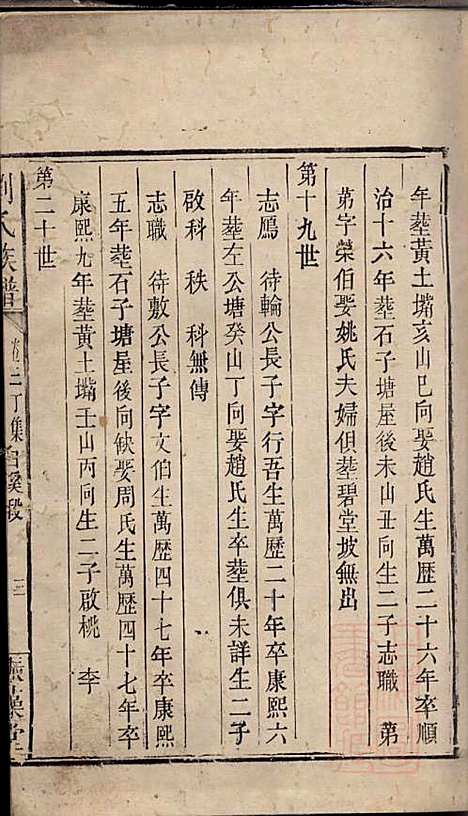 年塟黃土墈亥山巳向娶趙氏生萬歷二十六年卒順
治十六年塟石子塘屋後未山丑向生二子志職　第
第字榮伯娶姚氏夫婦俱塟碧堂坡無出
第十九世
志鴈　待輪公長子字行吾生萬歷二十年卒康熙六
年塟左公塘癸山丁向娶趙氏生卒塟俱未詳生二子
啟科　秩　科無傳
志職　待敷公長子字文伯生萬歷四十七年卒康熙
五年塟石子塘屋後向缺娶周氏生萬歷四十七年卒
康熙九年塟黃土墈壬山丙向生二子啟桃　李
第二十世
劉氏族譜　卷三丁集　溪段　三